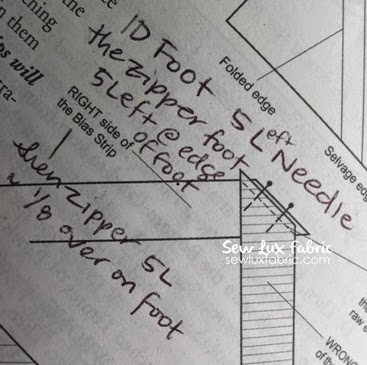 ening
the
in them
os will
rra-
1D Foot
the zipper foot
5 Left @ edge
of foot
5 Left
L Needle
then zipper 5L
1/8 over on foot
RIGHT side of
the Bias Strip
Folded edge
Selvage edg
Sew Lux Fabric
sewluxfabric.com
the
raw e
WRONG
of the